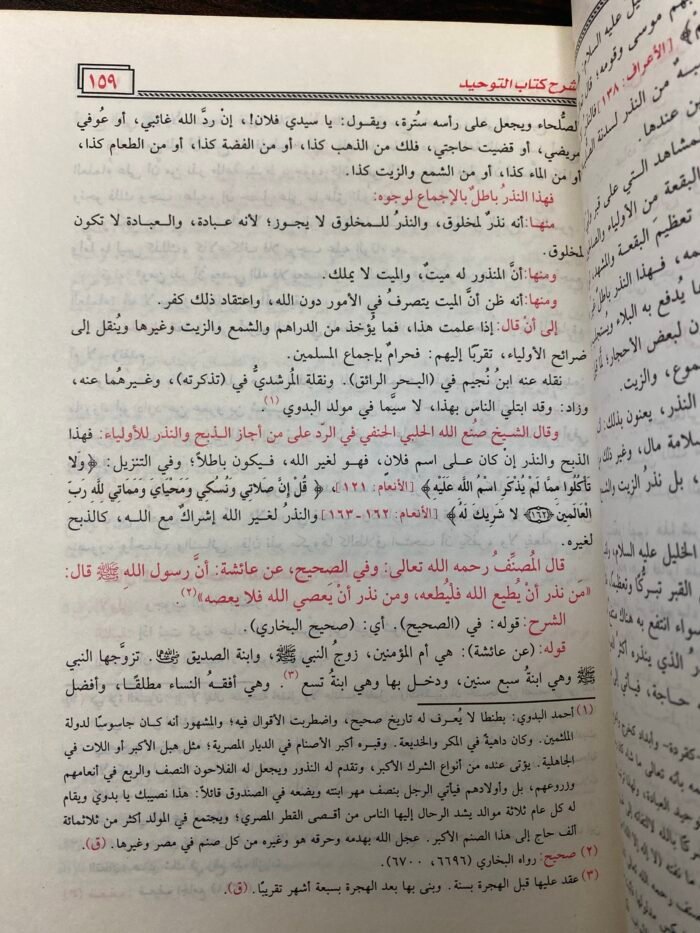 شرح كتاب التوحيد
١٥٩
الصُّلحاء ويجعل على رأسه سُترة، ويقول: يا سيدي فلان!، إنْ ردَّ الله غائبي، أو عُوفي
مريضي، أو قضيت حاجتي، فلك من الذهب كذا، أو من الفضة كذا، أو من الطعام كذا،
أو من الماء كذا، أو من الشمع والزيت كذا.
فهذا النذرُ باطلٌ بالإجماع لوجوه:
منهـا: أنه نذرٌ لمخلوق، والنذرُ للـمخلوق لا يجوز؛ لأنه عبـادة، والعبـادة لا تكون
لمخلوق.
ومنها: أنَّ المنذور له ميتٌ، والميت لا يملك.
ومنها: أنه ظن أنَّ الميت يتصرفُ في الأمور دون الله، واعتقاد ذلك كفر.
إلى أنْ قال: إذا علمت هذا، فما يُؤخذ من الدراهم والشمع والزيت وغيرها ويُنقل إلى
ضرائح الأولياء، تقربًا إليهم: فحرامٌ بإجماع المسلمين.
نقله عنه ابنُ نُجيم في (البـحر الرائق). ونقلة المُرشديُّ في (تذكرته)، وغيـرهُما عنه،
وزاد: وقد ابتلي الناس بهذا، لا سيَّما في مولد البدوي (١).
وقال الشيخ صُنع الله الحلبي الحنفي في الردّ على من أجاز الذبح والنذر للأولياء: فهذا
الذبح والنذر إنْ كان على اسم فلان، فهـو لغير الله، فيكون باطلاً؛ وفي التنزيل: ﴿وَلَا
تَأْكُلُوا مِمَّا لَمْ يُذْكَرِ اسْمُ اللَّهِ عَلَيْهِ﴾ [الأنعام: ١٢١]، ﴿ قُلْ إِنَّ صَلَاتِي وَنُسُكِي وَمَحْيَايَ وَمَمَاتِي لِلَّهِ رَبِّ
الْعَالَمِينَ ﴿١٦٢﴾ لَا شَرِيكَ لَهُ﴾ [الأنعام: ١٦٢-١٦٣] والنذر لغـير الله إشراكٌ مع اللـه، كالذبح
لغيره.
قال المُصنِّفُ رحمه الله تعالى: وفي الصحيح، عن عائشة: أنَّ رسول اللهِ ﷺ قال:
«مَن نذر أنْ يُطيع الله فلْيُطعه، ومن نذر أنْ يَعصي الله فلا يعصه»(٢).
الشرح: قوله: في (الصحيح). أي: (صحيح البخاري).
قوله: (عن عائشة): هي أم المؤمنين، زوجُ النبي ﷺ، وابنة الصديق رضي الله عنهما. تزوَّجها النبي
ﷺ وهي ابنةُ سبع سنين، ودخـل بها وهي ابنةُ تسع (٣). وهي أفقـهُ النساء مطلقًـا، وأفضل
(١) أحمد البدوي: بطنطا لا يُعـرف له تاريخ صحيح، واضطربت الأقوال فيه؛ والمشهور أنه كـان جاسوسًا لدولة
الملثمين. وكان داهيةً في المكر والخديعة. وقبـره أكبر الأصنام في الديار المصرية؛ مثل هبل الأكبر أو اللات في
الجاهلية. يؤتى عنده من أنواع الشرك الأكبر، وتقدم له النذور ويجعل له الفلاحون النصف والربع في أنعامهم
وزروعهم، بل وأولادهم فيأتي الرجل بنصف مهر ابنته ويضعه في الصندوق قائلاً: هذا نصيبك يا بدويّ ويقام
له كل عام ثلاثة موالد يشد الرحال إليها الناس من أقـصى القطر المصري؛ ويجتمع في المولد أكثر من ثلاثمائة
ألف حاج إلى هذا الصنم الأكبر. عجل الله بهدمه وحرقه هو وغيره من كل صنم في مصر وغيرها. (ق).
(٢) صحيح: رواه البخاري (٦٦٩٦، ٦٧٠٠).
(٣) عقد عليها قبل الهجرة بسنة. وبنى بها بعد الهجرة بسبعة أشهر تقريبًا. (ق).